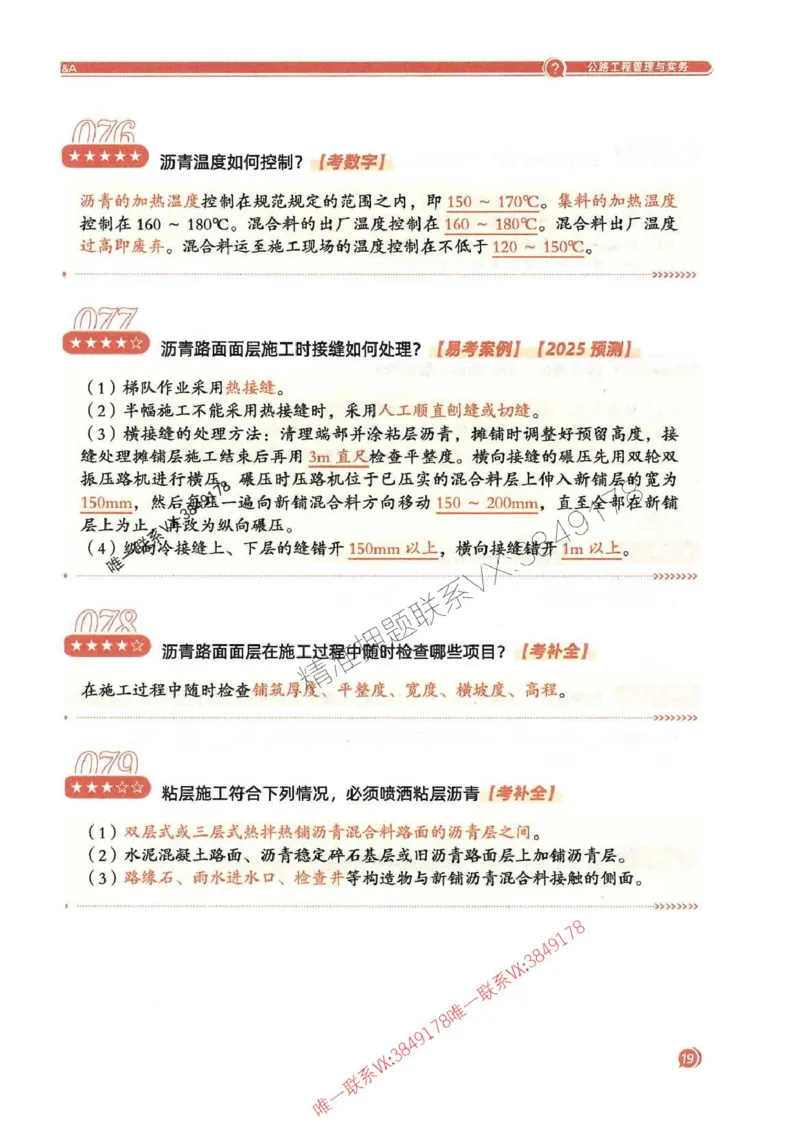 &A
公路工程管理与实务
076
沥青温度如何控制？【考数字】
沥青的加热温度控制在规范规定的范围之内，即 150 ~ 170℃。集料的加热温度
控制在 160 ~ 180℃。混合料的出厂温度控制在 160 ~ 180℃。混合料出厂温度
过高即废弃。混合料运至施工现场的温度控制在不低于 120 ~ 150℃。
077
沥青路面面层施工时接缝如何处理？【易考案例】【2025 预测】
（1）梯队作业采用热接缝。
（2）半幅施工不能采用热接缝时，采用人工顺直刨缝或切缝。
（3）横接缝的处理方法：清理端部并涂粘层沥青，摊铺时调整好预留高度，接
缝处理摊铺层施工结束后再用 3m 直尺检查平整度。横向接缝的碾压先用双轮双
振压路机进行横压，碾压时压路机位于已压实的混合料层上伸入新铺层的宽为
150mm，然后每压一遍向新铺混合料方向移动 150 ~ 200mm，直至全部在新铺
层上为止，再改为纵向碾压。
（4）纵向冷接缝上、下层的缝错开 150mm 以上，横向接缝错开 1m 以上。
唯一联系VX:3849178
精准押题联系VX:3849178
078
沥青路面面层在施工过程中随时检查哪些项目？【考补全】
在施工过程中随时检查铺筑厚度、平整度、宽度、横坡度、高程。
079
粘层施工符合下列情况，必须喷洒粘层沥青【考补全】
（1）双层式或三层式热拌热铺沥青混合料路面的沥青层之间。
（2）水泥混凝土路面、沥青稳定碎石基层或旧沥青路面层上加铺沥青层。
（3）路缘石、雨水进水口、检查井等构造物与新铺沥青混合料接触的侧面。
唯一联系VX:3849178唯一联系VX:3849178
19